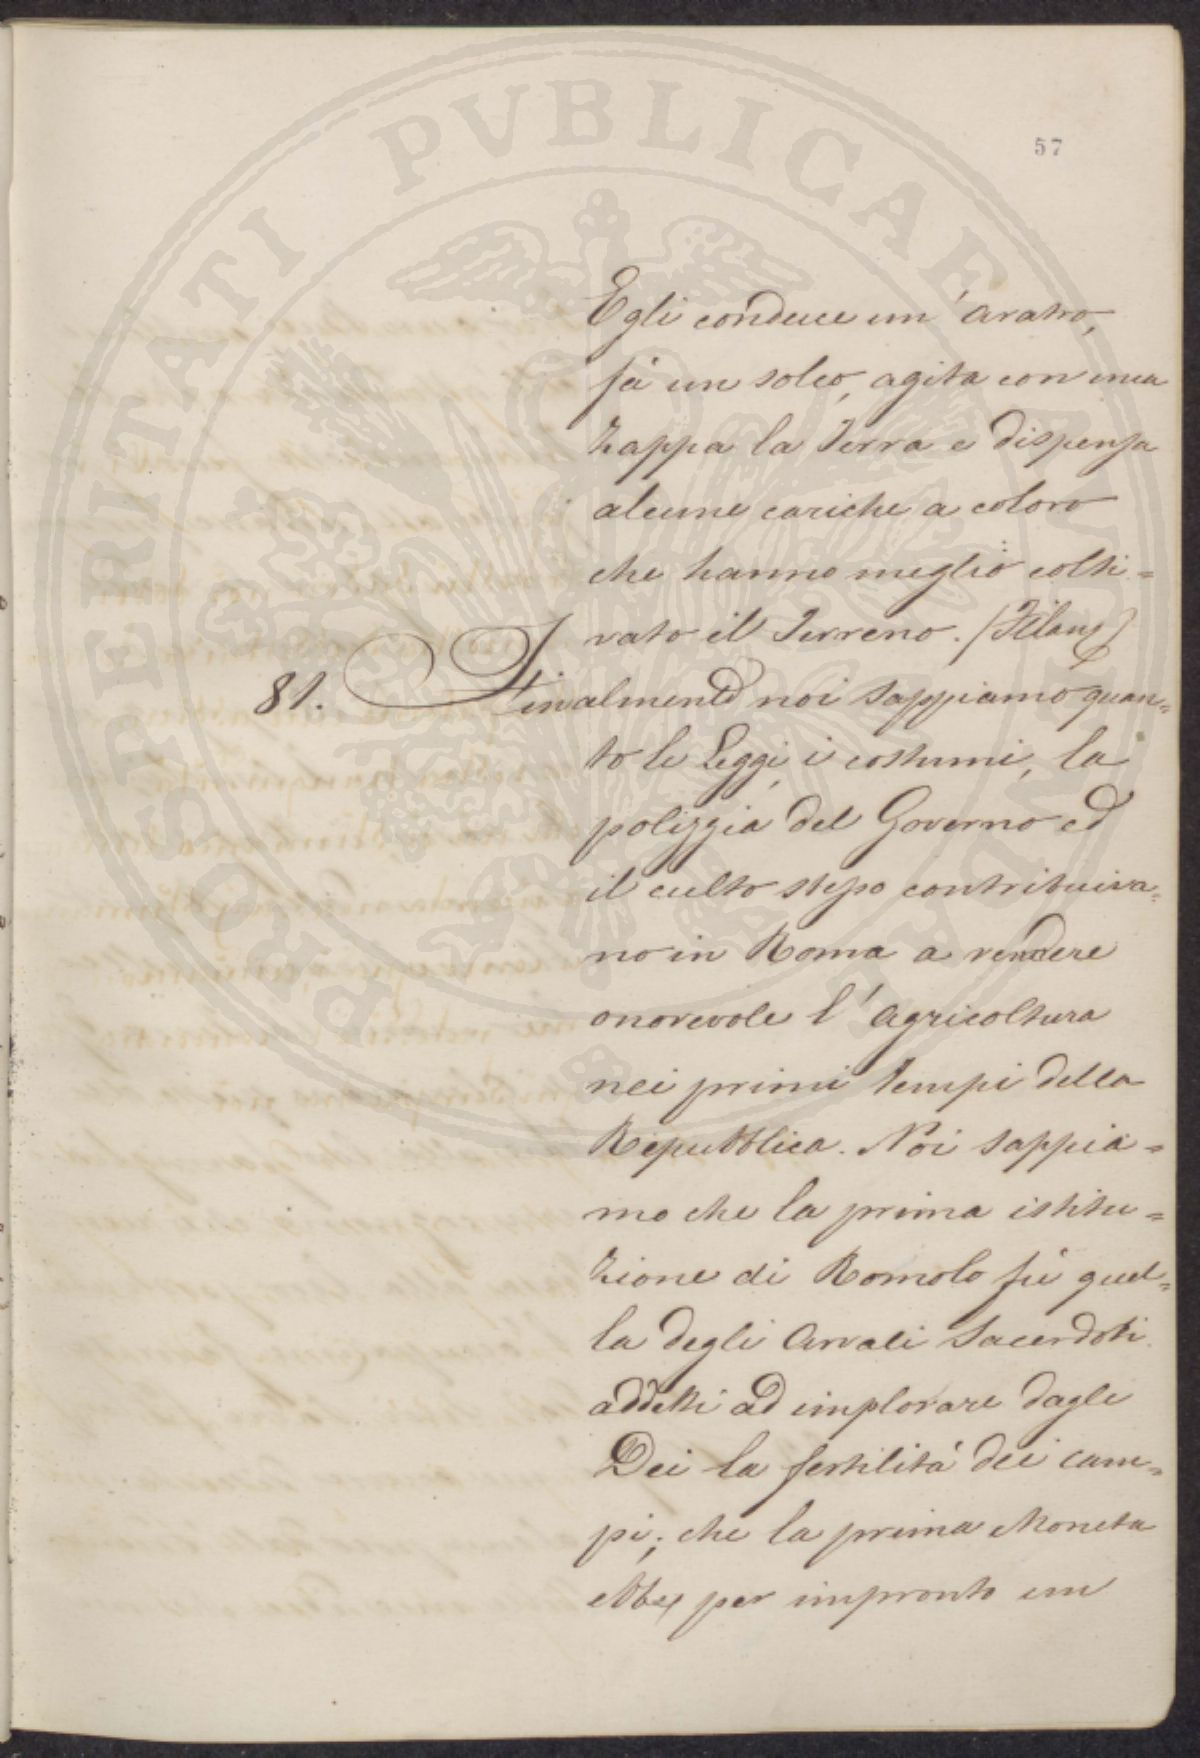 PROSPERITATI PVBLICAE AVGENDAE
57
Egli conduce un' aratro,
fà un solco, agita con una
zappa la Terra e dispensa
alcune cariche a coloro
che hanno meglio colti=
vato il Terreno. (Filang)
81. Finalmente noi sappiamo quan=
to le Leggi, i costumi, la
polizzia del Governo ed
il culto stesso contribuiva=
no in Roma a rendere
onorevole l' Agricoltura
nei primi tempi della
Repubblica. Noi sappia=
mo che la prima istitu=
zione di Romolo fù quel=
la degli Arvali Sacerdoti
addetti ad implorare dagli
Dei la fertilità dei cam=
pi; che la prima Moneta
ebbe per impronto un